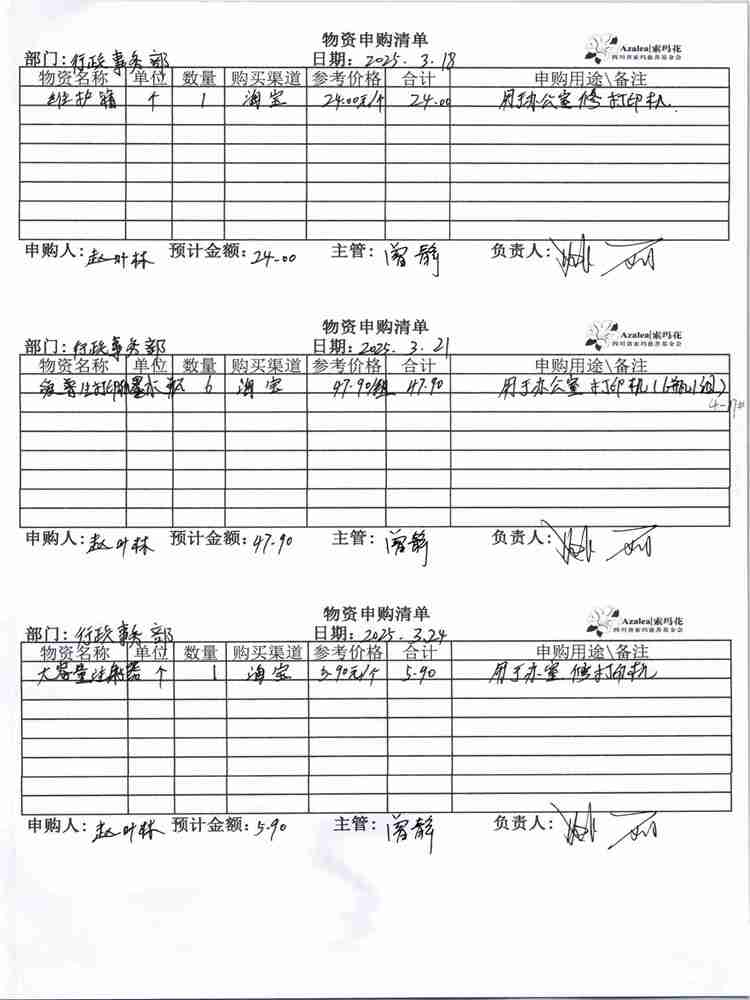 物资申购清单
Azalea|索玛花
四川省索玛慈善基金会
部门：行政事务部 日期：2025.3.18
物资名称 单位 数量 购买渠道 参考价格 合计 申购用途\备注
维护箱 个 1 淘宝 24.00元/个 24.00 用于办公室修打印机.
申购人：赵叶林 预计金额：24.00 主管：曾静 负责人：
物资申购清单
Azalea|索玛花
四川省索玛慈善基金会
部门：行政事务部 日期：2025.3.21
物资名称 单位 数量 购买渠道 参考价格 合计 申购用途\备注
爱普生打印机墨水 瓶 6 淘宝 47.90/组 47.90 用于办公室打印机(6瓶1组)
申购人：赵叶林 预计金额：47.90 主管：曾静 负责人：
物资申购清单
Azalea|索玛花
四川省索玛慈善基金会
部门：行政事务部 日期：2025.3.24
物资名称 单位 数量 购买渠道 参考价格 合计 申购用途\备注
大容量注射器 个 1 淘宝 5.90元/个 5.90 用于办室修打印机
申购人：赵叶林 预计金额：5.90 主管：曾静 负责人：